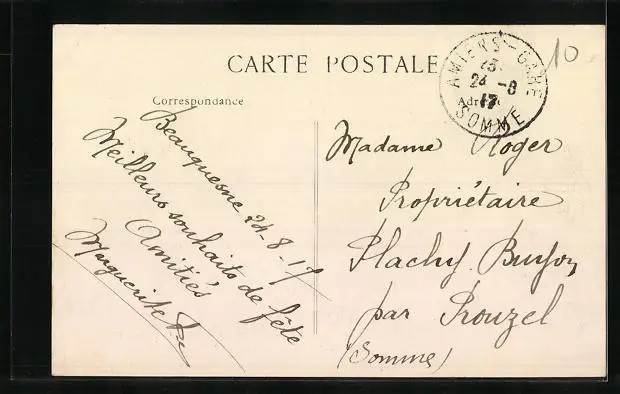 CARTE POSTALE
Correspondance
Adresse
AMIENS-GARE
24 -8
17
SOMME
10
Beauquesne 24-8-17
Meilleurs souhaits de fête
Amitiés
Marguerite
Madame Roger
Propriétaire
Plachy Buyon
par Prouzel
(Somme)